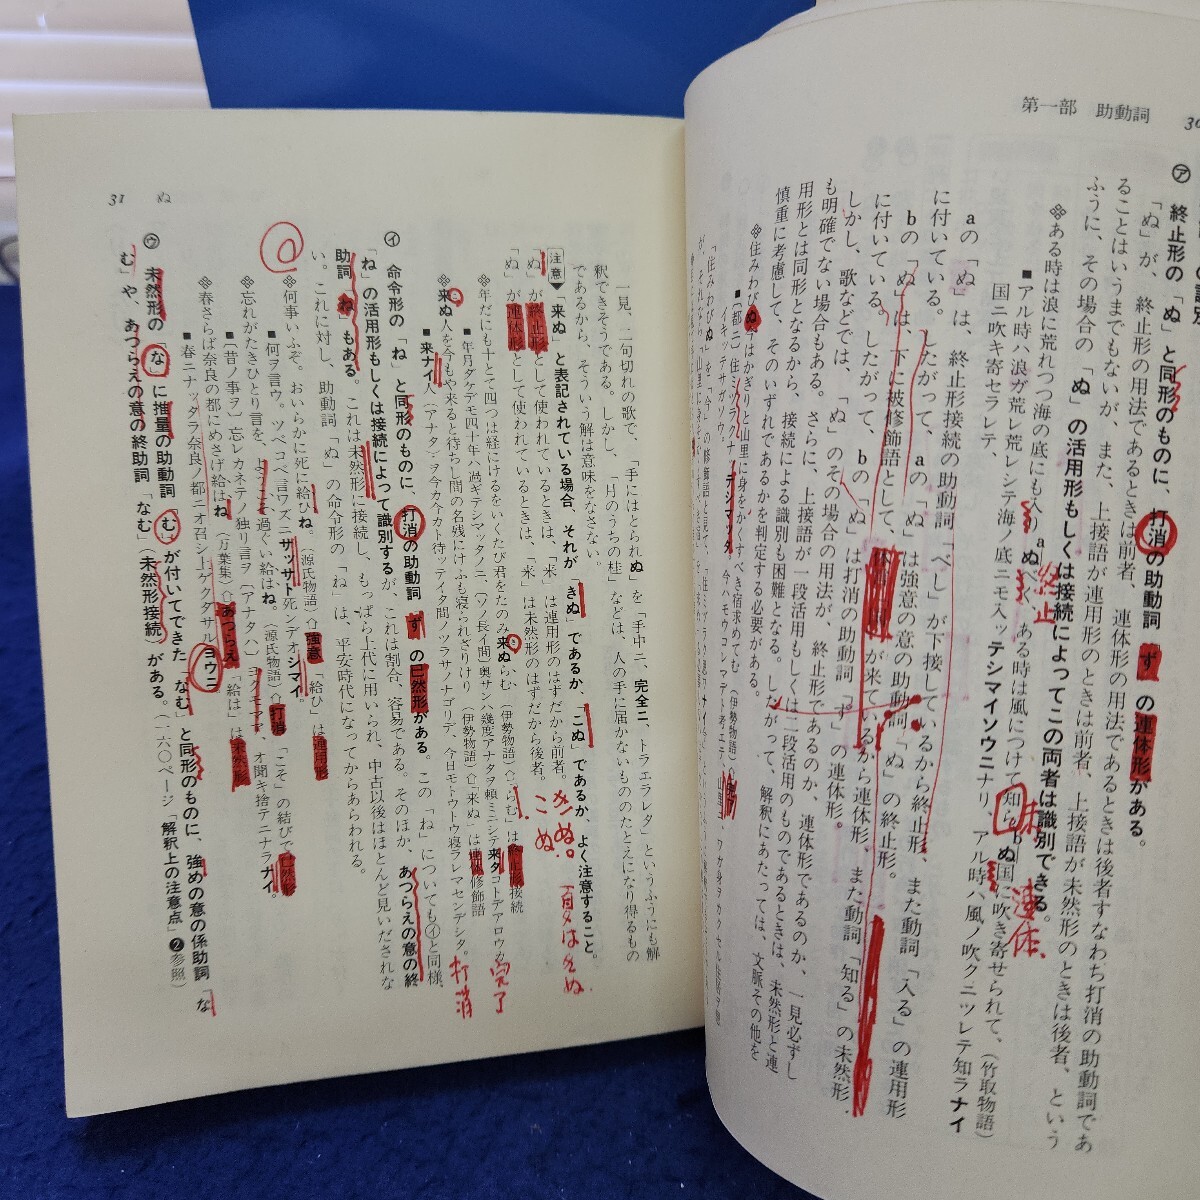 第一部 助動詞 30
㋐ 終止形の「ぬ」と同形のものに、打消の助動詞ずの連体形がある。
「ぬ」が、終止形の用法であるときは前者、連体形の用法であるときは後者すなわち打消の助動詞であ
ることはいうまでもないが、また、上接語が連用形のときは前者、上接語が未然形のときは後者、という
ふうに、その場合の「ぬ」の活用形もしくは接続によってこの両者は識別できる。
※ある時は浪に荒れつつ海の底にも入りaぬべく、ある時は風につけて知らbぬ国に吹き寄せられて、(竹取物語)
終止
未 連体
■アル時ハ浪ガ荒レ荒レシテ海ノ底ニモ入ッテシマイソウニナリ、アル時ハ風ノ吹クニツレテ知ラナイ
国ニ吹キ寄セラレテ、
aの「ぬ」は、終止形接続の助動詞「べし」が下接しているから終止形、また動詞「入る」の連用形
に付いている。したがって、aの「ぬ」は強意の助動詞「ぬ」の終止形。
bの「ぬ」は、下に被修飾語として、が来ているから連体形、また動詞「知る」の未然形
に付いている。したがって、bの「ぬ」は打消の助動詞「ず」の連体形。
しかし、歌などでは、「ぬ」のその場合の用法が、終止形であるのか、連体形であるのか、一見必ずし
も明確でない場合もある。さらに、上接語が一段活用もしくは二段活用のものであるときは、未然形と連
用形とは同形となるから、接続による識別も困難となる。したがって、解釈にあたっては、文脈その他を
慎重に考慮して、そのいずれであるかを判定する必要がある。
※住みわびぬ今はかぎりと山里に身をかくすべき宿求めてむ(伊勢物語)⇧完了
■〔都ニ〕住ミヅラクナッテシマッタ。今ハモウコレマデト考エテ、山里ニ、ワガ身ヲカクセル住家ヲ
31 ぬ
一見、二句切れの歌で、「手にはとられぬ」を「手中ニ、完全ニ、トラエラレタ」というふうにも解
釈できそうである。しかし、「月のうちの桂」などは、人の手に届かないもののたとえになり得るもの
であるから、そういう解は意味をなさない。
注意▼「来ぬ」と表記されている場合、それが「きぬ」であるか、「こぬ」であるか、よく注意すること。
「ぬ」が終止形として使われているときは、「来」は連用形のはずだから前者。
「ぬ」が連体形として使われているときは、「来」は未然形のはずだから後者。
きぬ。
こぬ
※年だにも十とて四つは経にけるをいくたび君をたのみ来ぬらむ(伊勢物語)⇧「らむ」は終止形接続
■年月ダケデモ四十年ハ過ギテシマッタノニ、〔ソノ長イ間〕奥サンハ幾度アナタヲ頼ミニシテ来タコトデアロウカ
完了
※来ぬ人を今もや来ると待ちし間の名残にけふも寝られざりけり(伊勢物語)⇧「来ぬ」は連体修飾語
■来ナイ人(アナタ)ヲ今カ今カト待ッテイタ間ノツラサノナゴリデ、今日モトウトウ寝ラレマセンデシタ。
打消
㋑ 命令形の「ね」と同形のものに、打消の助動詞ずの已然形がある。この「ね」についても㋐と同様、
「ね」の活用形もしくは接続によって識別するが、これは割合、容易である。そのほか、あつらえの意の終
助詞ねもある。これは未然形に接続し、もっぱら上代に用いられ、中古以後はほとんど見いだされな
い。これに対し、助動詞「ぬ」の命令形の「ね」は、平安時代になってからあらわれる。
※何事いふぞ。おいらかに死に給ひね。(源氏物語)⇧強意「給ひ」は連用形
■何ヲ言ウ。ツベコベ言ワズニサッサト死ンデオシマイ。
※忘れがたきひとり言を、ようこそ過ぐい給はね。(源氏物語)⇧打消「こそ」の結びで已然形
■〔昔ノ事ヲ〕忘レカネテノ独リ言ヲ〔アナタハ〕ヨクモママ、オ聞キ捨テニナラナイ。
※春さらば奈良の都にめさげ給はね(万葉集)⇧あつらえ「給は」は未然形
■春ニナッタラ奈良ノ都ニオ召シ上ゲクダサルヨウニ
㋒ 未然形の「な」に推量の助動詞「む」が付いてできたなむと同形のものに、強めの意の係助詞「な
む」や、あつらえの意の終助詞「なむ」(未然形接続)がある。(一六〇ページ「解釈上の注意点」❷参照)